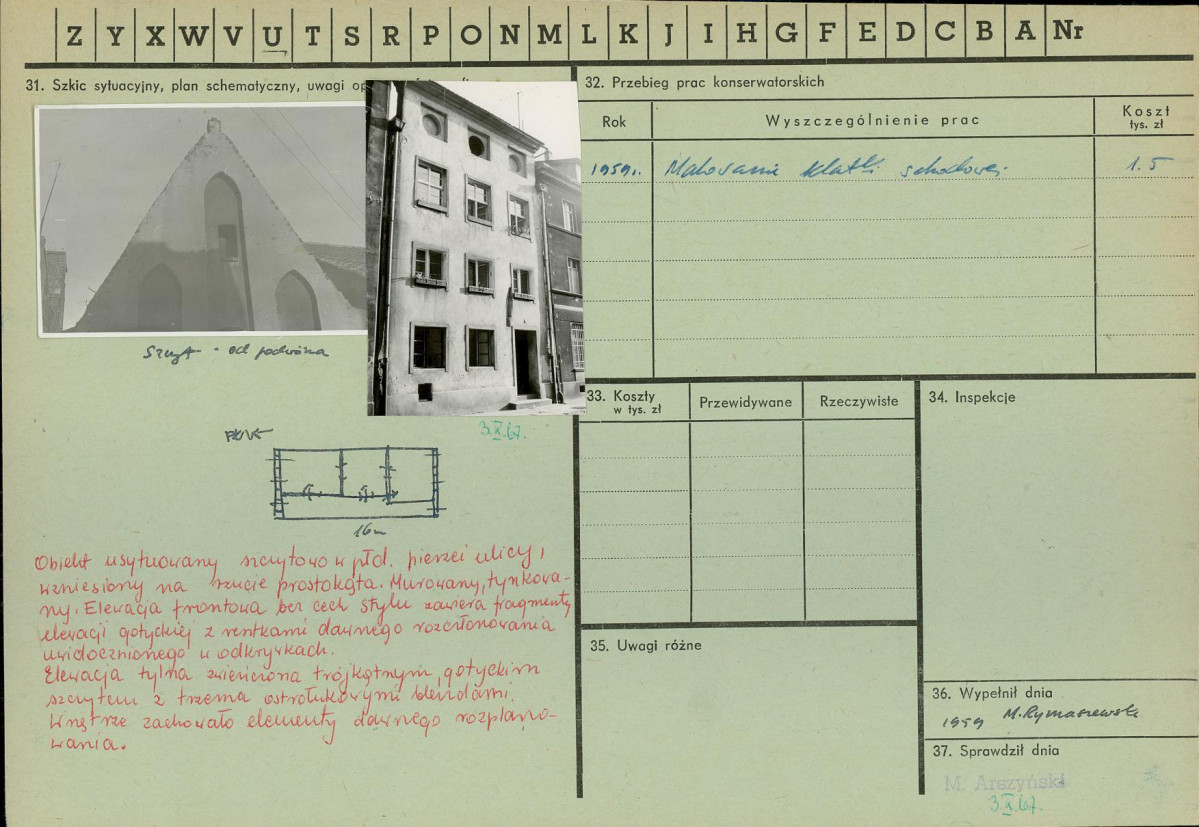 Z Y X W V U T S R P O N M L K J I H G F E D C B A Nr
31. Szkic sytuacyjny, plan schematyczny, uwagi
Szczyt - od podwórza
3.X.67.
16m
Obiekt usytuowany szczytowo w płd. pierzei ulicy,
wzniesiony na rzucie prostokąta. Murowany, tynkowa-
ny. Elewacja frontowa bez cech stylu zawiera fragmenty
elewacji gotyckiej z resztkami dawnego rozczłonowania
uwidocznionego w odkrywkach.
Elewacja tylna zwieńczona trójkątnym, gotyckim
szczytem z trzema ostrołukowymi blendami.
Wnętrze zachowało elementy dawnego rozplano-
wania.
32. Przebieg prac konserwatorskich
Rok
Wyszczególnienie prac
Koszt
tys. zł
1959r. Malowanie klatki schodowej 1.5
33. Koszty
w tys. zł
Przewidywane
Rzeczywiste
34. Inspekcje
35. Uwagi różne
36. Wypełnił dnia
1959 M. Rymaszewski
37. Sprawdził dnia
M. Arszyński
3.X.67.